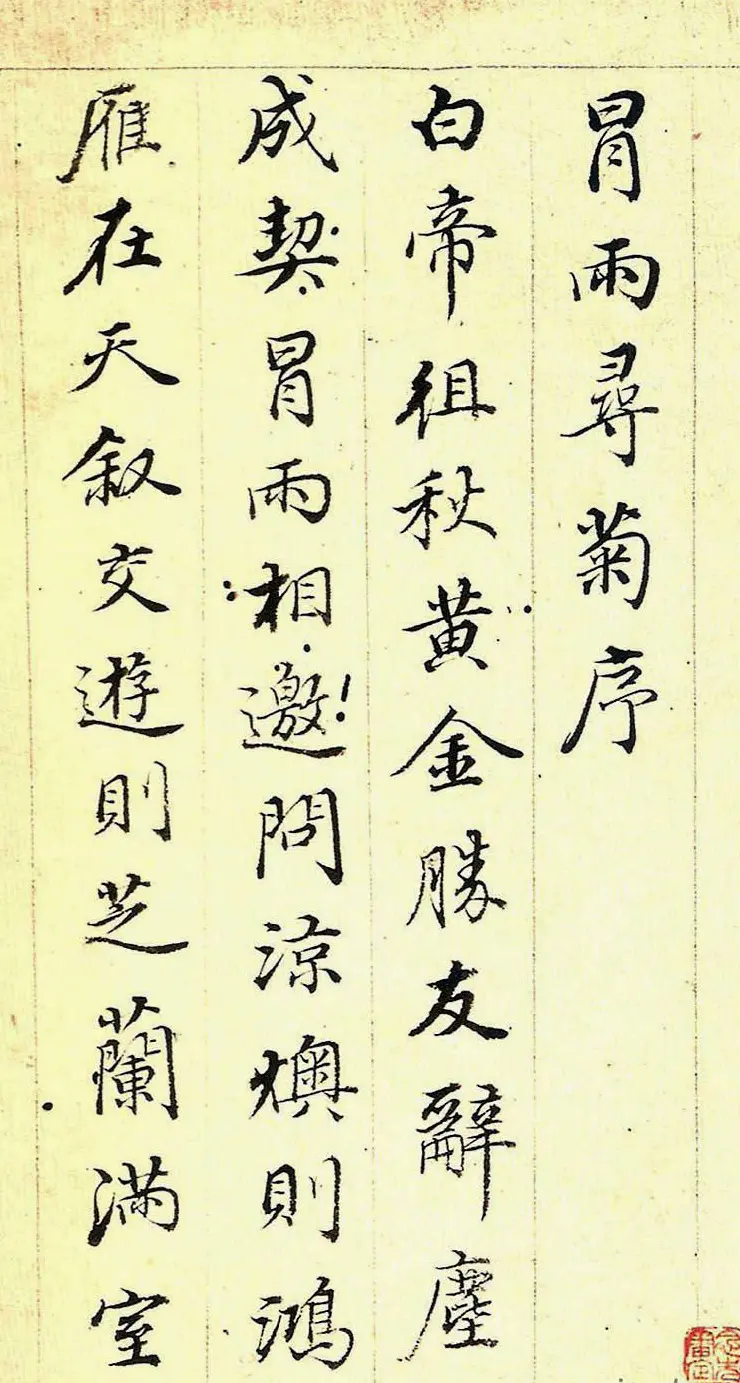 冒雨尋菊序
白帝徂秋黄金勝友辭塵
成契冒雨相邀問涼燠則鴻
雁在天叙交遊則芝蘭滿室